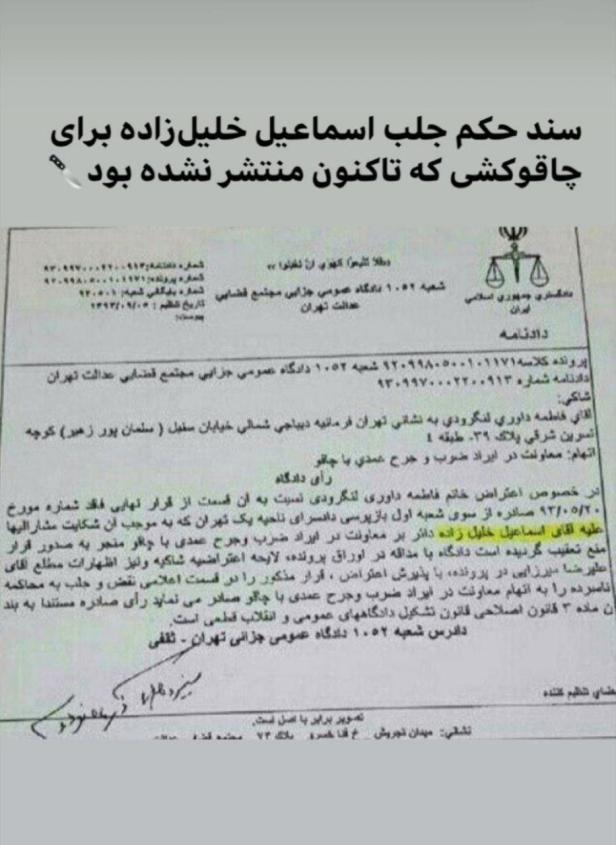 سند حکم جلب اسماعیل خلیل‌زاده برای
چاقوکشی که تاکنون منتشر نشده بود
دادگستری جمهوری اسلامی
ایران
شعبه ۱۰۵۲ دادگاه عمومی جزایی مجتمع قضایی
عدالت تهران
شماره دادنامه: ۹۳۰۹۹۷۰۰۰۲۲۰۰۹۱۳
شماره پرونده:
شماره بایگانی شعبه:
تاریخ تنظیم: ۱۳۹۳/۰۹/۰۵
پیوست:
دادنامه
پرونده کلاسه ۹۲۰۹۹۸۰۵۰۰۱۰۱۱۷۱ شعبه ۱۰۵۲ دادگاه عمومی جزایی مجتمع قضایی عدالت تهران
دادنامه شماره ۹۳۰۹۹۷۰۰۰۲۲۰۰۹۱۳
شاکی:
آقای فاطمه داوری لنگرودی به نشانی تهران فرمانیه دیباجی شمالی خیابان سفیل ( سلمان پور زهیر) کوچه
نسرین شرقی پلاک ۳۹- طبقه ٤
اتهام: معاونت در ایراد ضرب و جرح عمدی با چاقو
رأی دادگاه
در خصوص اعتراض خانم فاطمه داوری لنگرودی نسبت به آن قسمت از قرار نهایی فاقد شماره مورخ
۹۳/۰۵/۲۰ صادره از سوی شعبه اول بازپرسی دادسرای ناحیه یک تهران که به موجب آن شکایت مشارالیها
علیه آقای اسماعیل خلیل زاده دائر بر معاونت در ایراد ضرب وجرح عمدی با چاقو منجر به صدور قرار
منع تعقیب گردیده است دادگاه با مداقه در اوراق پرونده، لایحه اعتراضیه شاکیه ونیز اظهارات مطلع آقای
علیرضا میرزایی در پرونده، با پذیرش اعتراض ، قرار مذکور را در قسمت اعلامی نقض و جلب به محاکمه
نامبرده را به اتهام معاونت در ایراد ضرب وجرح عمدی با چاقو صادر می نماید رأی صادره مستندا به بند
ن ماده ۳ قانون اصلاحی قانون تشکیل دادگاههای عمومی و انقلاب قطعی است.
دادرس شعبه ۱۰۵۲ دادگاه عمومی جزائی تهران - ثقفی
امضای تنظیم کننده
تصویر برابر با اصل است.
نشانی: میدان تجریش